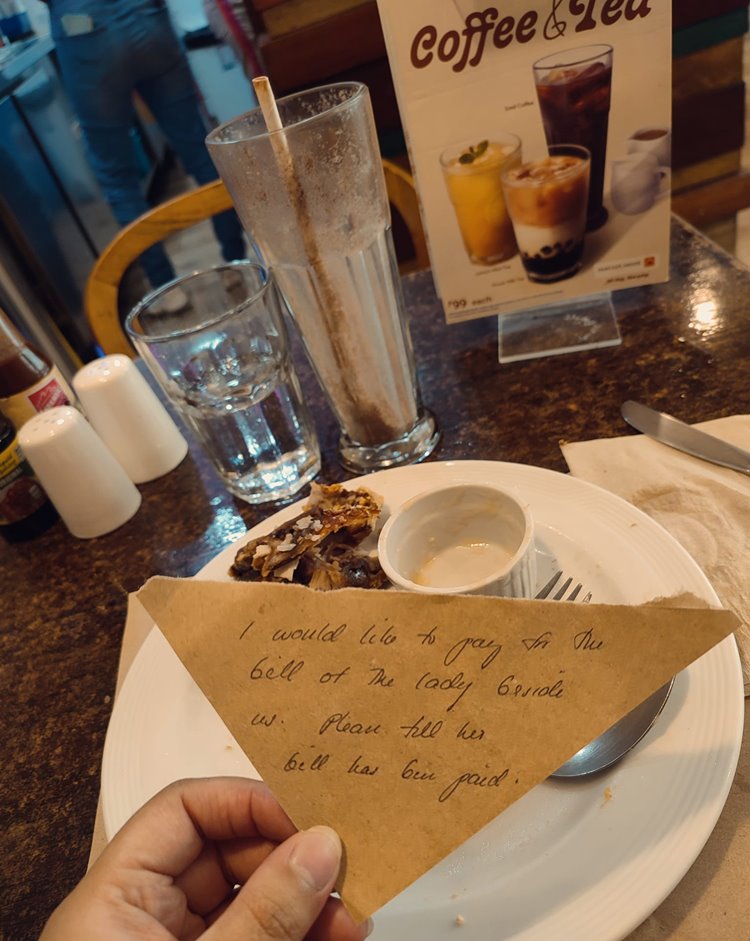 Coffee & Tea
Iced Coffee
₱99 each
I would like to pay for the
bill of the lady beside
us. Please tell her
bill has been paid.